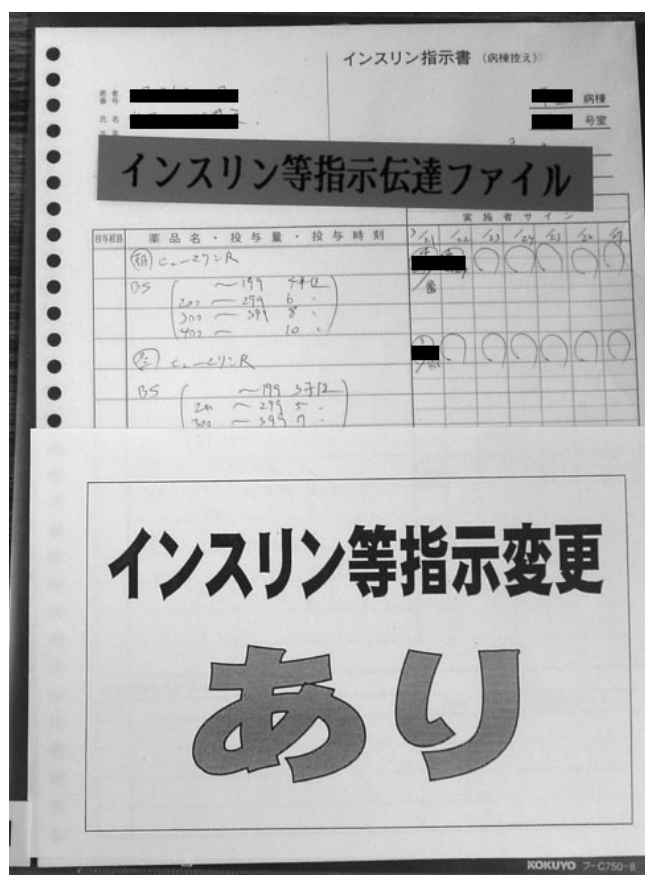 インスリン指示書 (病棟控え)
患者
番号
病棟
氏名
号室
インスリン等指示伝達ファイル
実施者サイン
投与経路 薬品名・投与量・投与時刻 3/21 /22 /23 /24 /25 /26 /27
朝 ヒューマリンR
BS ~199 4単位
200 ~ 299 6 〃
300 ~ 399 8 〃
400 ~ 10 〃
ヒューマリンR
BS ~199 3単位
200 ~ 299 5 〃
300 ~ 399 7 〃
インスリン等指示変更
あり
KOKUYO フ-C750-8